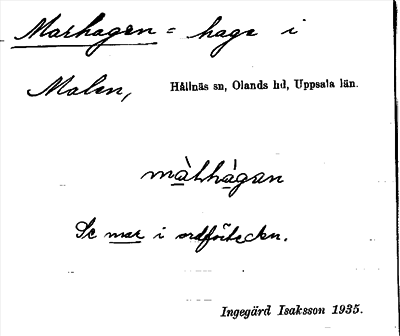 Marhagen = hage i
Malen, Hållnäs sn, Olands hd, Uppsala län.
màhhàgan
Se mar i ordförteckn.
Ingegärd Isaksson 1935.